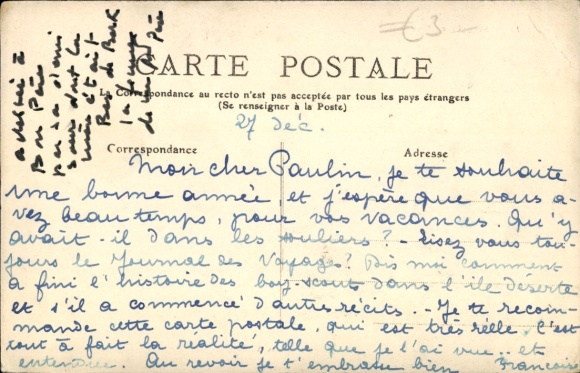 €3-
a
Bon Papa
par sa
dont la
mère était
CARTE POSTALE
La Correspondance au recto n'est pas acceptée par tous les pays étrangers
(Se renseigner à la Poste)
27 Déc.
Correspondance
Adresse
Mon cher Paulin, je te souhaite
une bonne année, et j'espère que vous a-
vez beau temps, pour vos vacances. Qu'y
avait-il dans les souliers? - Lisez vous tou-
jours le Journal des Voyages? Dis moi comment
a fini l'histoire des boy-scouts dans l'île déserte
et s'il a commencé d'autres récits. - Je te recom-
mande cette carte postale, qui est très réelle. C'est
tout à fait la réalité, telle que je l'ai vue.. et
entendue. Au revoir je t'embrasse bien Françoise